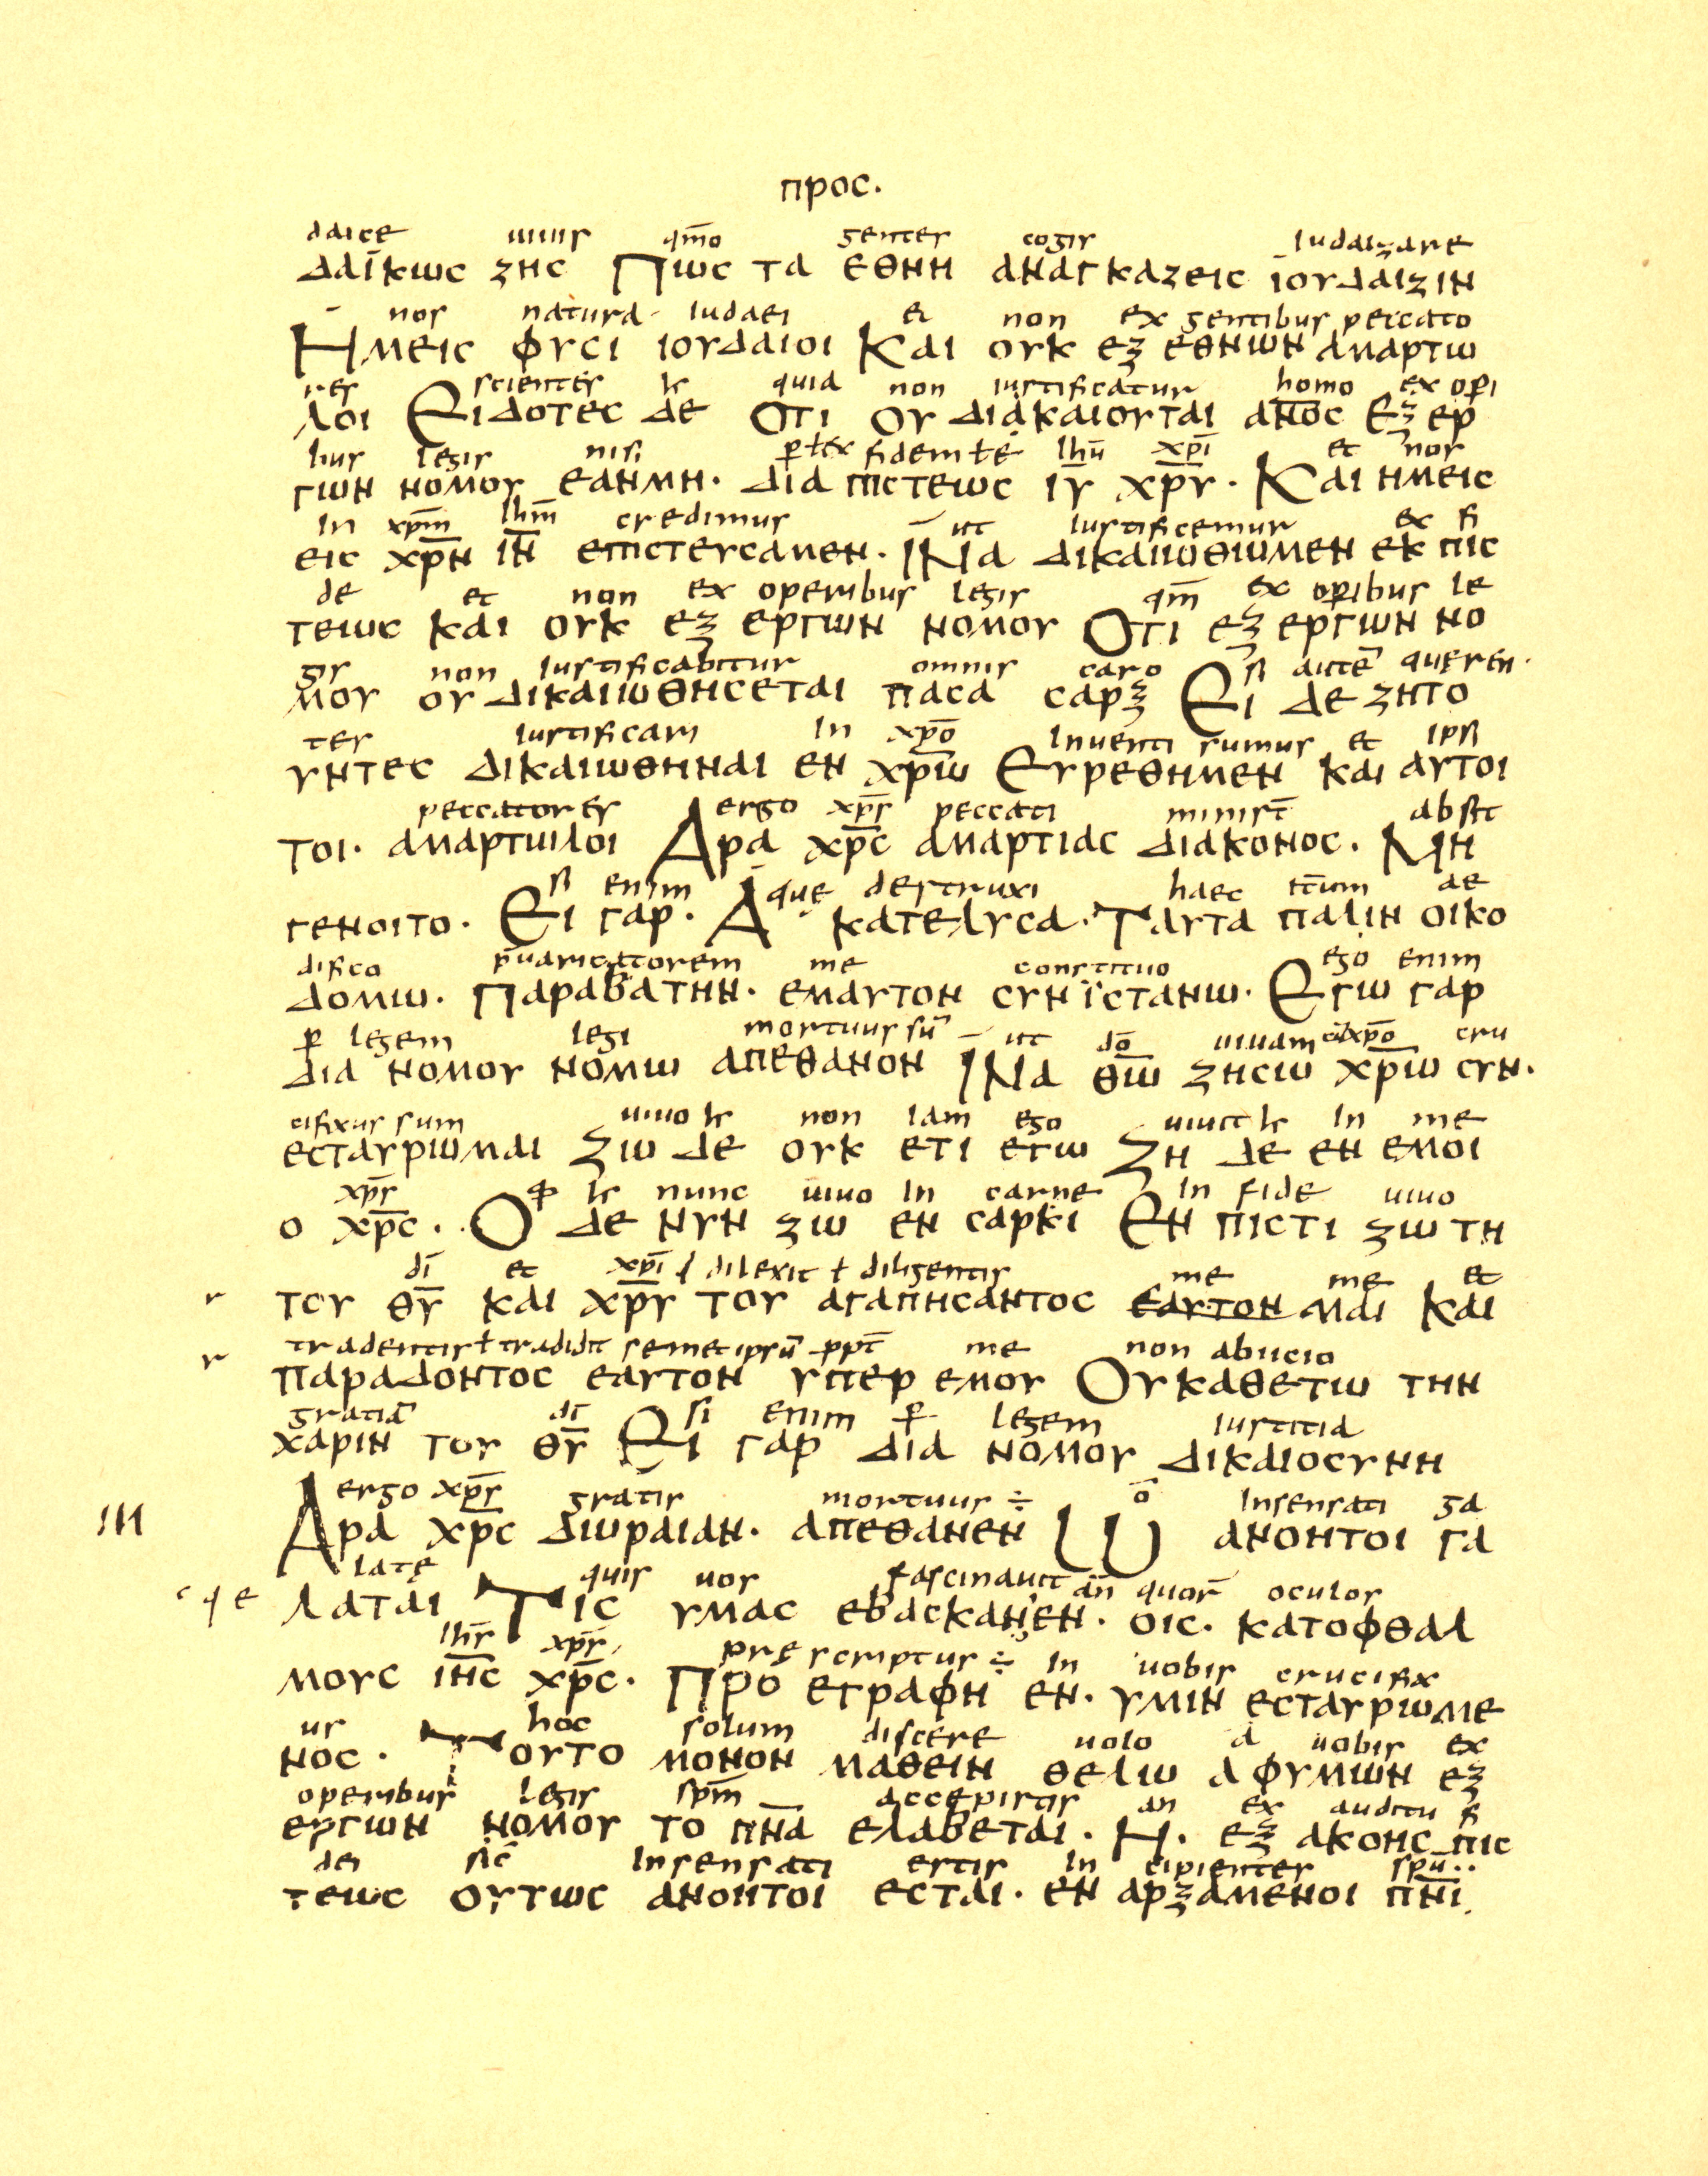 προς.
daice uiuis qm̅o gentes cogis iudaizare
δαϊκως ζης Πως τα εθνη αναγκαζεις ϊουδαιζιν
nos natura iudaei et non ex gentibus peccato
Ημεις φυσι ιουδαιοι Και ουκ εξ εθνων αμαρτω
res scientes h̵ quia non iustificatur homo ex op̱i
λοι Ειδοτες δε Οτι ου διακαιουται αν̅ος Εξ ερ
bus legis nisi p̱ ł ex fidem ł e ihū xp̅i et nos
γων νομου εανμη. δια πιστεως ιυ̅ χρ̅υ. Και ημεις
in xp̅m ihm̅ credimus ut iustificemur ex fi
εις χρ̅ν ιη̅ν επιστευσαμεν. ΙΝα δικαιωθωμεν εκ πις
de et non ex operibus legis qm̅ ex op̱ibus le
τεως και ουκ εξ εργων νομου Οτι εξ εργων νο
gis non iustificabitur omnis caro si autē querēn.
μου ου δικαιωθησεται πασα σαρξ Ει δε ζητο
tes iustificari in xp̅o inuenti sumus et ipsi
υντες δικαιωθηναι εν χρ̅ω Ευρεθημεν και αυτοι
peccatores ergo xp̅s peccati minist̅ absit
τοι. αμαρτωιλοι Αρα χρ̅ς αμαρτιας διακονος. Μη
si enim que destruxi haec it̅um ae
γενοιτο. Ει γαρ. Α κατελυσα. Ταυτα παλιν οικο
difico p̅uaricatorem me constituo ego enim
δομω. Παραβατην. εμαυτον συν ϊστανω. Εγω γαρ
p̱ legem legi mortuus sū ut do̅ uiuam cū xp̅o cru
δια νομου νομω απεθανον ΙΝα θω̅ ζησω χρ̅ω συν.
cifixus sum uiuo h̵ non iam ego uiuit h̵ in me
εσταυρωμαι Ζω δε ουκ ετι εγω Ζη δε εν εμοι
xp̅s qđ h̵ nunc uiuo in carne in fide uiuo
ο χρ̅ς. Ο δε νυν ζω εν σαρκι Εν πιστι ζω τη
di̅ et xp̅i dilexit ł diligentis me me et
r του θυ̅ και χρ̅υ του αγαπησαντος εαυτον μαι και
tradentis ł tradidit semetipsū ppt̅ me non abiicio
r παραδοντος εαυτον υπερ εμου Ουκαθετω την
gratiā di̅ si enim p̱ legem iustitia
χαριν του θυ̅ Ει γαρ δια νομου δικαιοσυνη
ergo xp̅s gratis mortuus ÷ o̅ insensati ga
III Αρα χρ̅ς δωραιαν. απεθανεν Ω ανοητοι γα
latę quis uos fascinauit an̅ quor̅ oculos
λαται Τις υμας εβασκανεν. οις. κατοφθαλ
ihs̅ xp̅s pręscriptus ÷ in uobis crucifix
μους ιη̅ς χρ̅ς. Προ εγραφη εν. υμιν εσταυρωμε
us hoc solum discere uolo a uobis ex
νος. Τουτο μονον μαθειν θελω αφυμων εξ
operibus legis spm̅ accepistis an ex auditu fi
εργων νομου το πν̅α ελαβεται. Η. εξ ακοης πις
dei sic̅ insensati estis in cipientes spū..
τεως ουτως ανοητοι εσται. εν αρξαμενοι πν̅ι.